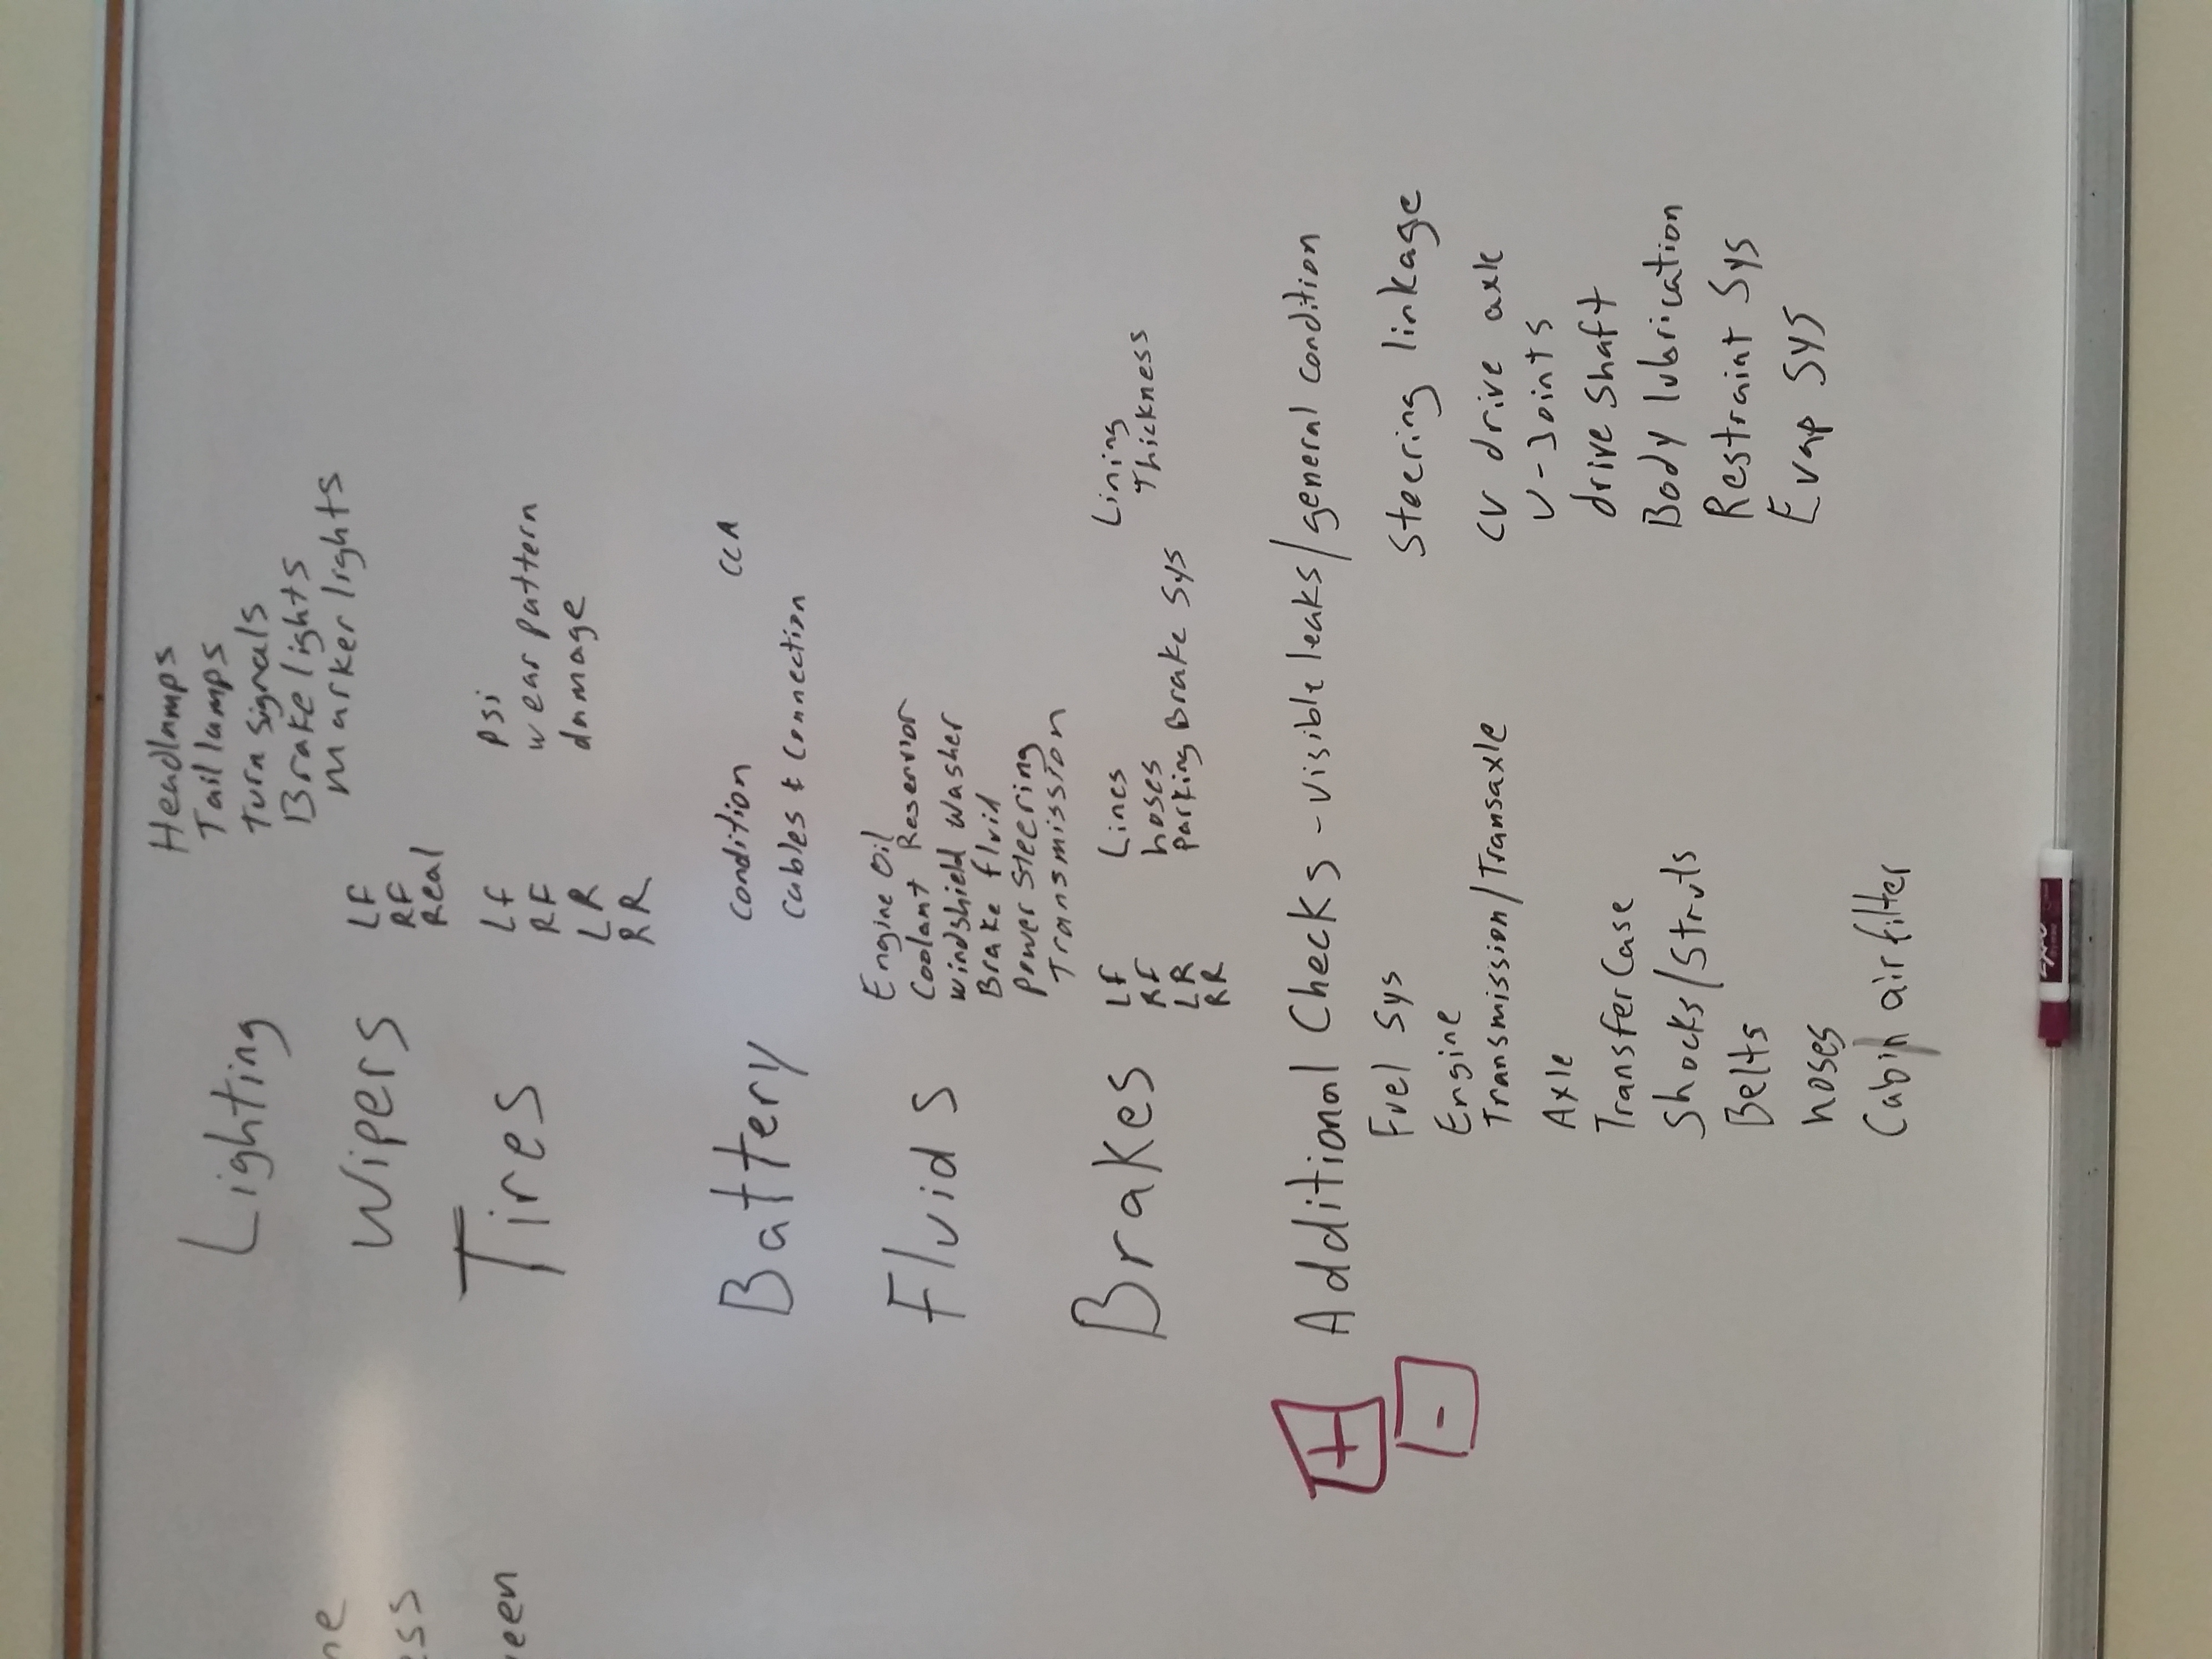 Lighting
Headlamps
Tail lamps
Turn signals
Brake lights
Marker lights
ne
ess
een
Wipers
LF
RF
Real
Tires
LF
RF
LR
RR
psi
wear pattern
damage
Battery
condition
cables & connection
CCA
Fluids
Engine Oil
Coolant Reservior
windshield washer
Brake fluid
power steering
Transmission
Brakes
LF
RF
LR
RR
Lines
hoses
parking Brake Sys
Lining
Thickness
+
-
Additional Checks - visible leaks/general condition
Fuel Sys
Engine
Transmission/Transaxle
Axle
Transfer Case
Shocks/Struts
Belts
hoses
Cabin air filter
Steering linkage
CV drive axle
U-Joints
drive shaft
Body lubrication
Restraint Sys
Evap Sys
EXPO